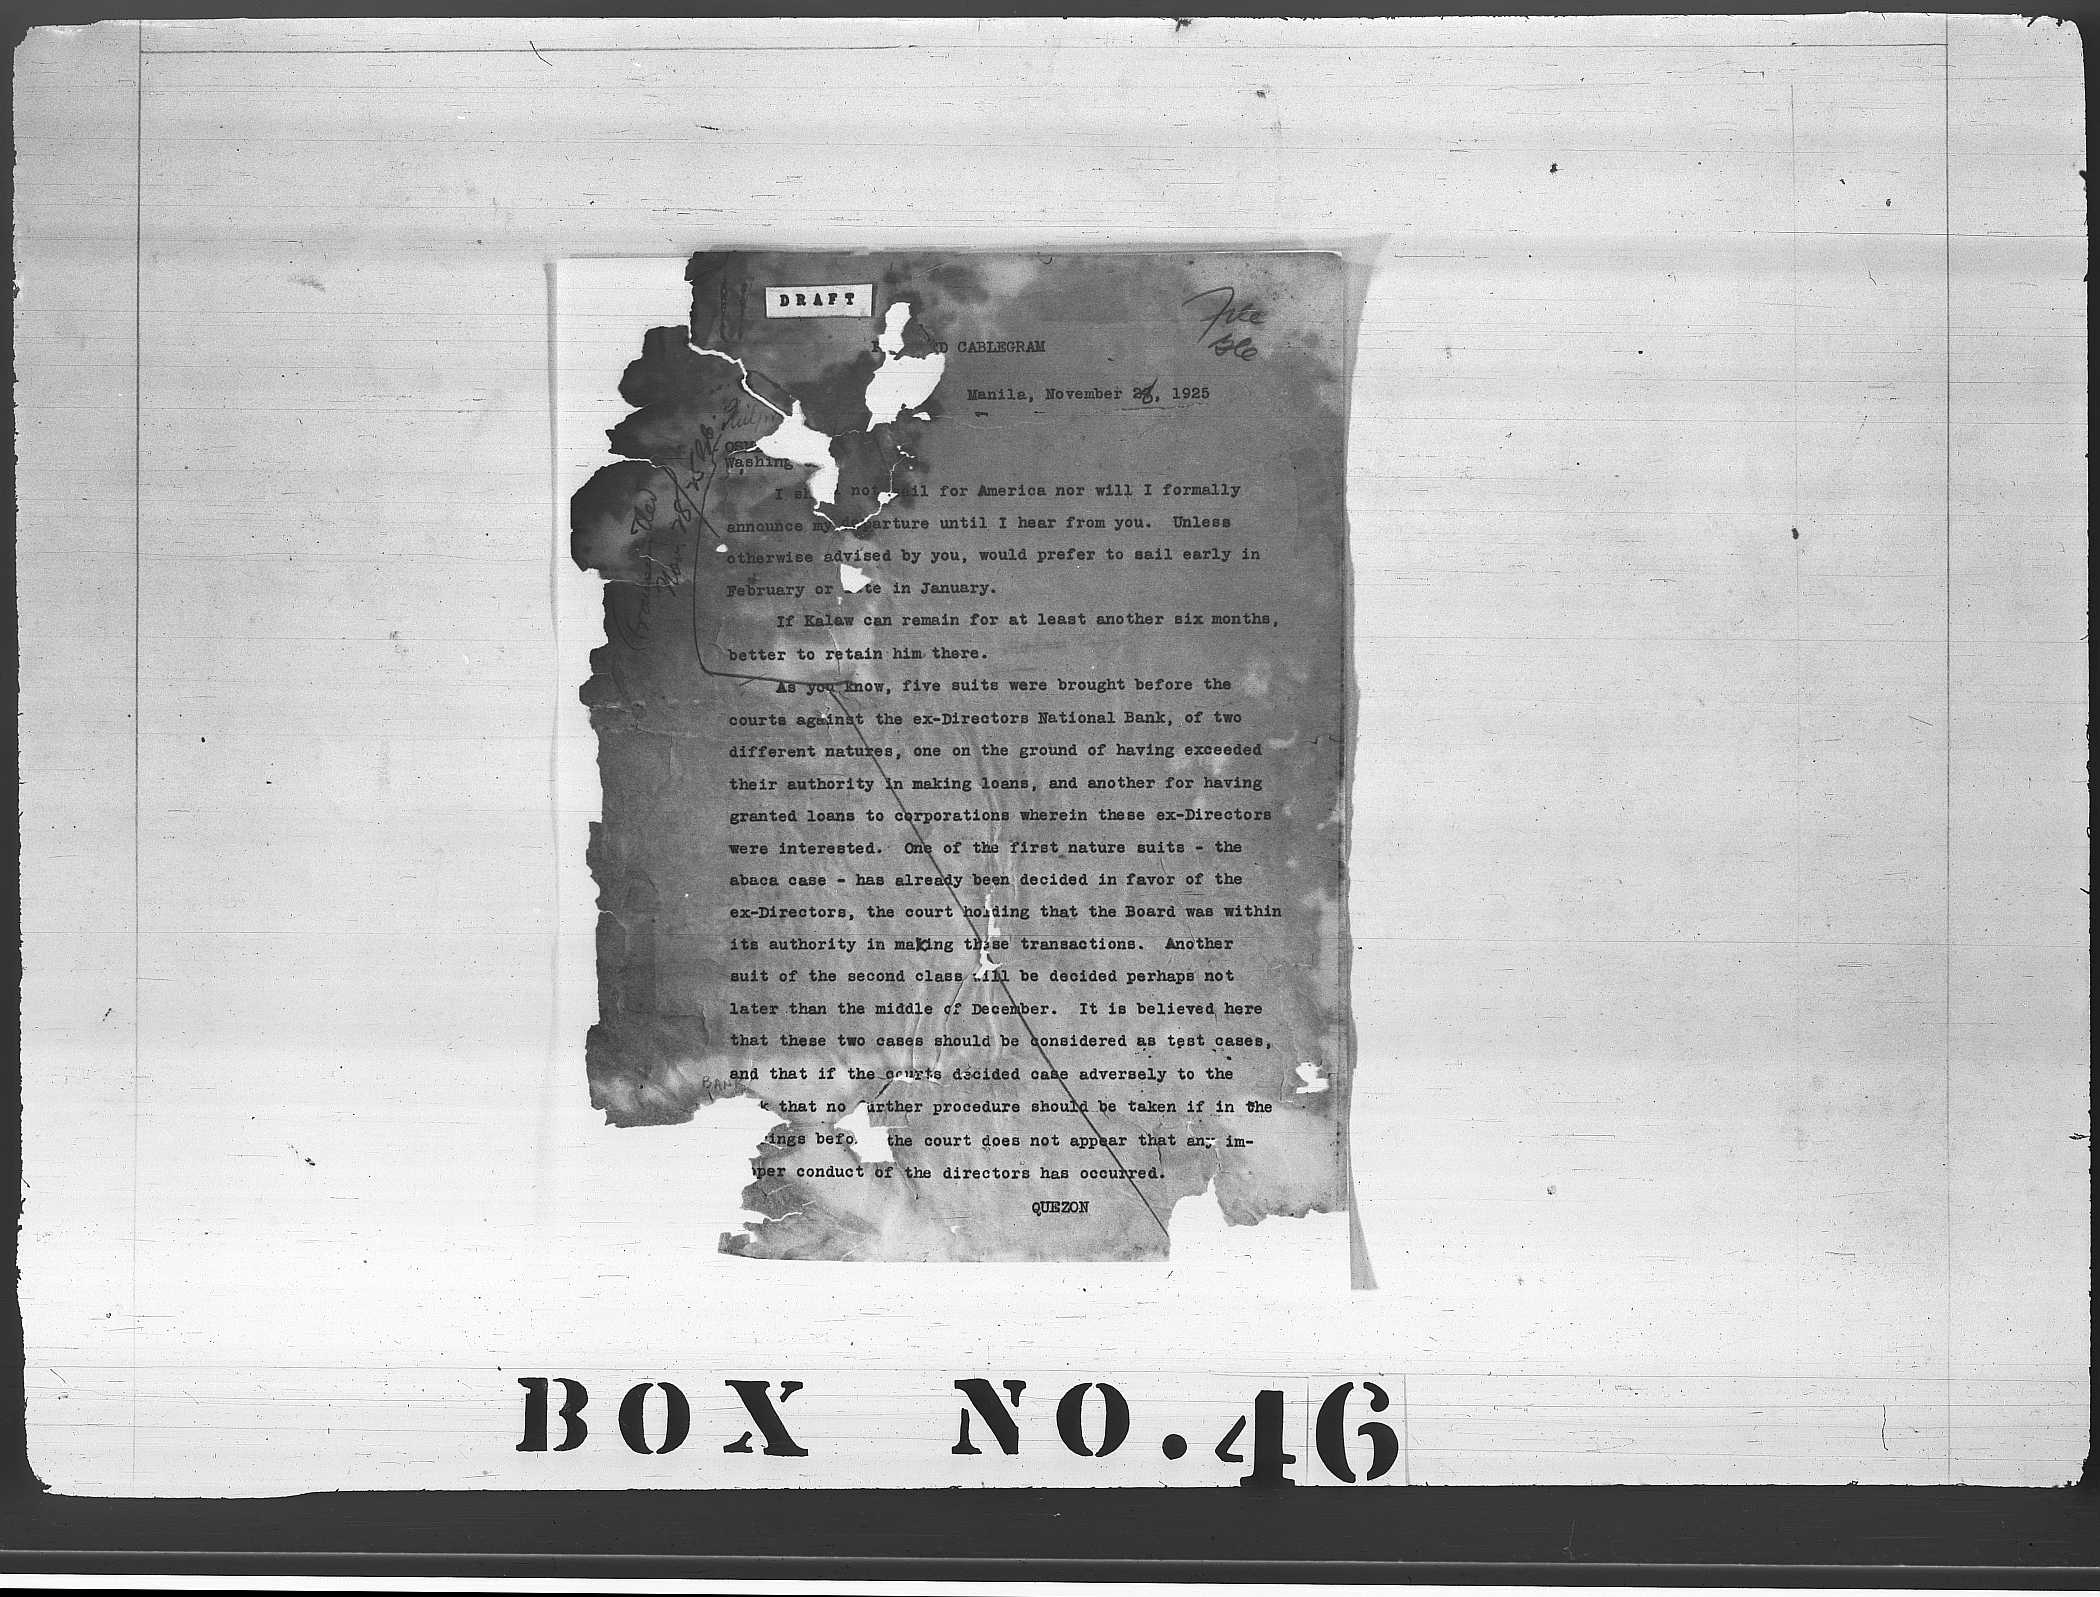 DRAFT
File
D CABLEGRAM
Manila, November 28, 1925
Washing
I not ail for America nor will I formally
announce my departure until I hear from you. Unless
otherwise advised by you, would prefer to sail early in
February or te in January.
If Kalaw can remain for at least another six months,
better to retain him there.
As you know, five suits were brought before the
courts against the ex-Directors National Bank, of two
different natures, one on the ground of having exceeded
their authority in making loans, and another for having
granted loans to corporations wherein these ex-Directors
were interested. One of the first nature suits - the
abaca case - has already been decided in favor of the
ex-Directors, the court holding that the Board was within
its authority in making these transactions. Another
suit of the second class will be decided perhaps not
later than the middle of December. It is believed here
that these two cases should be considered as test cases,
and that if the courts decided case adversely to the
BANK
k that no urther procedure should be taken if in the
ings befo the court does not appear that any im-
per conduct of the directors has occurred.
QUEZON
Nov 28/25
BOX NO.46